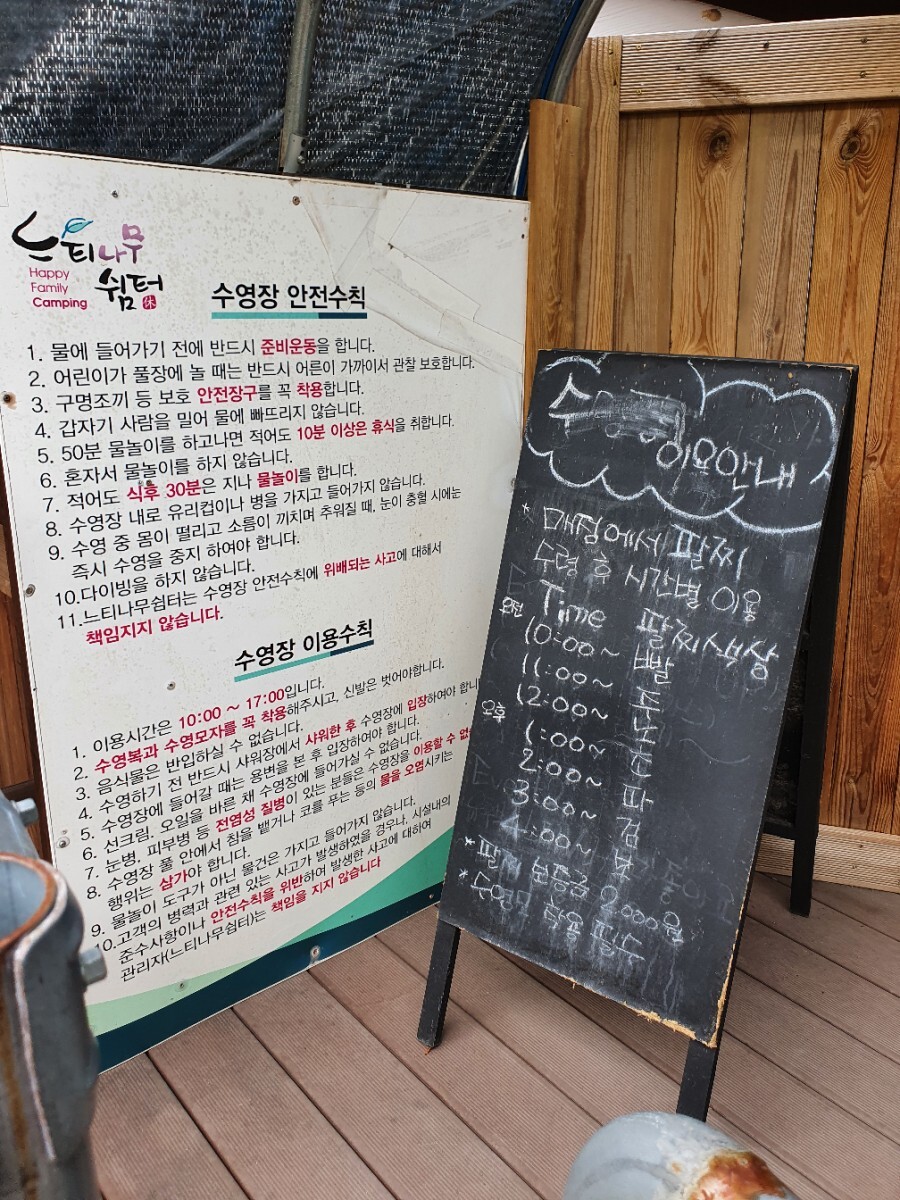 느티나무
쉼터
休
Happy
Family
Camping
수영장 안전수칙
1. 물에 들어가기 전에 반드시 준비운동을 합니다.
2. 어린이가 풀장에 놀 때는 반드시 어른이 가까이서 관찰 보호합니다.
3. 구명조끼 등 보호 안전장구를 꼭 착용합니다.
4. 갑자기 사람을 밀어 물에 빠뜨리지 않습니다.
5. 50분 물놀이를 하고나면 적어도 10분 이상은 휴식을 취합니다.
6. 혼자서 물놀이를 하지 않습니다.
7. 적어도 식후 30분은 지나 물놀이를 합니다.
8. 수영장 내로 유리컵이나 병을 가지고 들어가지 않습니다.
9. 수영 중 몸이 떨리고 소름이 끼치며 추워질 때, 눈이 충혈 시에는
즉시 수영을 중지 하여야 합니다.
10.다이빙을 하지 않습니다.
11.느티나무쉼터는 수영장 안전수칙에 위배되는 사고에 대해서
책임지지 않습니다.
수영장 이용수칙
1. 이용시간은 10:00 ~ 17:00입니다.
2. 수영복과 수영모자를 꼭 착용해주시고, 신발은 벗어야합니다.
3. 음식물은 반입하실 수 없습니다.
4. 수영하기 전 반드시 샤워장에서 샤워한 후 수영장에 입장하여야 합니
5. 수영장에 들어갈 때는 용변을 본 후 입장하여야 합니다.
6. 선크림, 오일을 바른 채 수영장에 들어가실 수 없습니다.
7. 눈병, 피부병 등 전염성 질병이 있는 분들은 수영장을 이용할 수 없
8. 수영장 풀 안에서 침을 뱉거나 코를 푸는 등의 물을 오염시키는
행위는 삼가야 합니다.
9. 물놀이 도구가 아닌 물건은 가지고 들어가지 않습니다.
10.고객의 병력과 관련 있는 사고가 발생하였을 경우나, 시설내의
준수사항이나 안전수칙을 위반하여 발생한 사고에 대하여
관리자(느티나무쉼터)는 책임을 지지 않습니다
수영장
이용안내
* 매점에서 팔찌
수령 후 시간별 이용
Time 팔찌색상
오전 10:00~ 빨
11:00~ 주
12:00~ 노
오후 1:00~ 초
2:00~ 파
3:00~ 검
4:00~ 보
* 팔찌 보증금 2000원
* 수영모 착용 필수